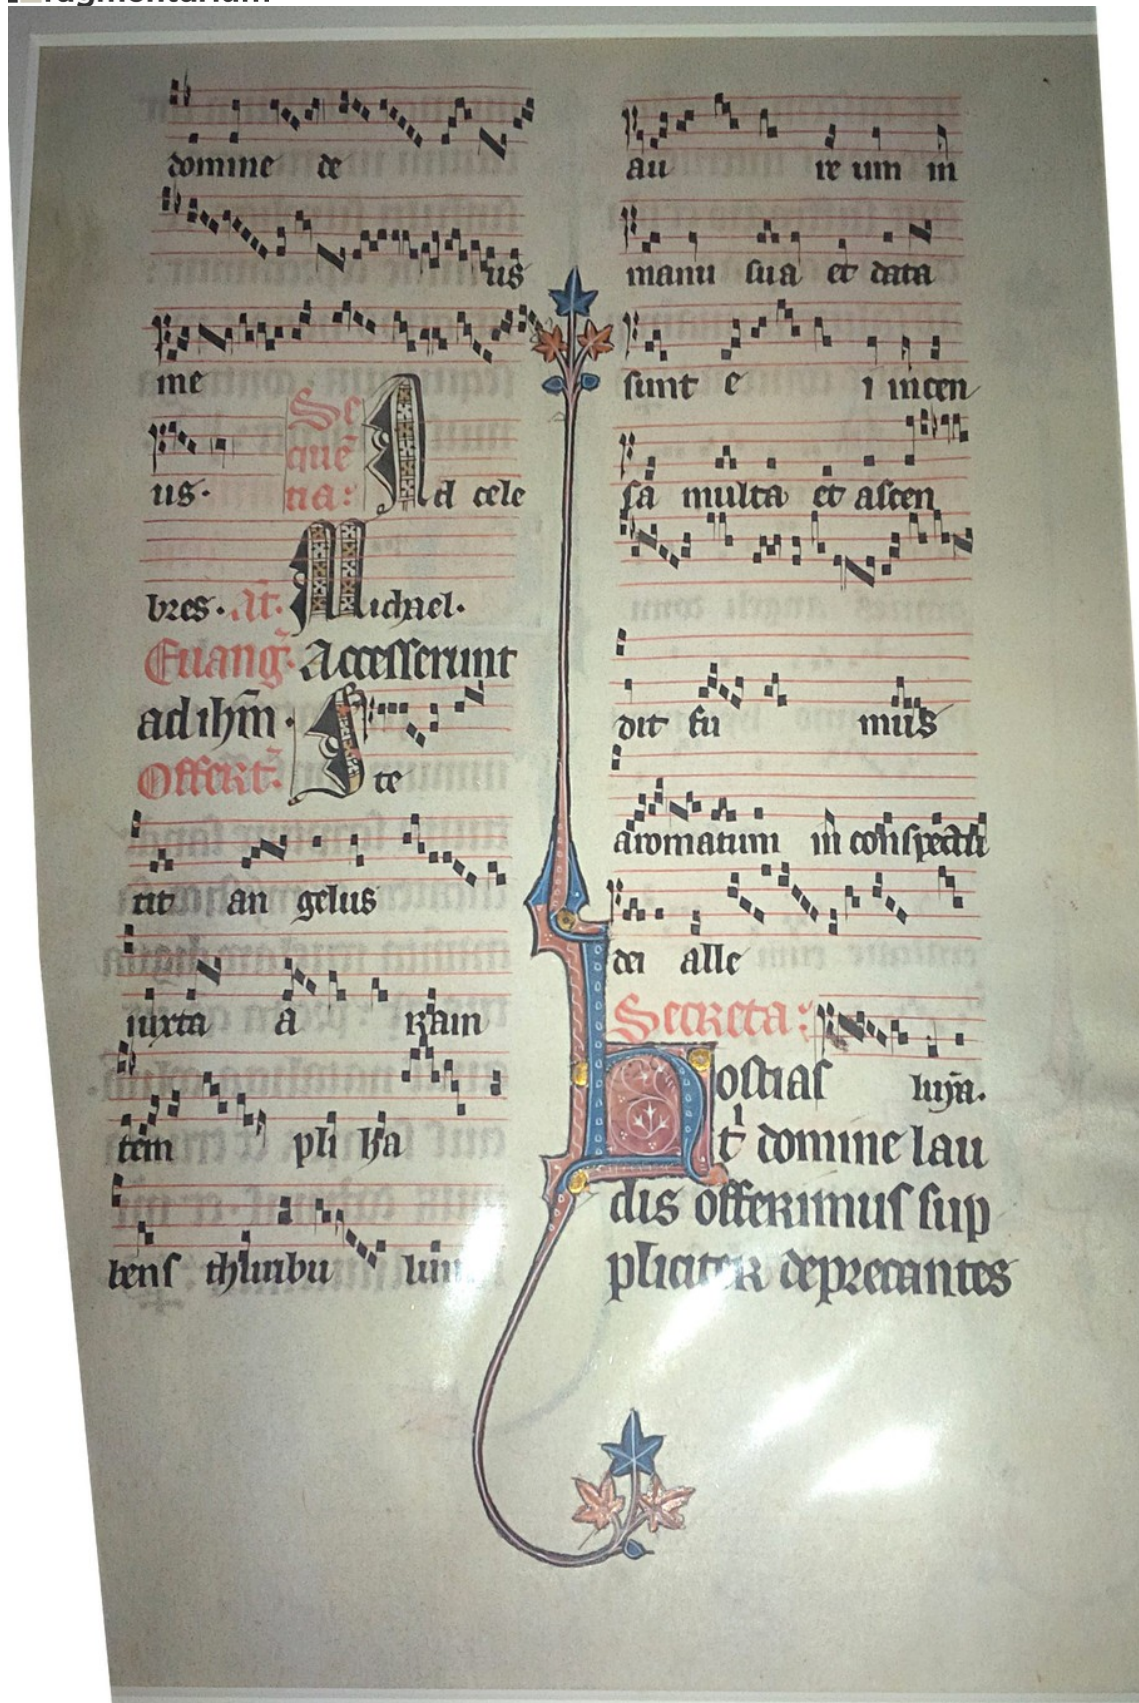 fragmentarium
domine de
us
me
us. Se
que
tia: Ad cele
bres. At. Michael.
Euang. Accesserunt
ad ihm.
Offert. Ste
tit an gelus
iuxta a ram
tem pli ha
bens thuribu lum
au re um in
manu sua et data
sunt e i incen
sa multa et ascen
dit fu mus
aromatum in conspectu
dei alle
Secreta:
Hostias luya.
t domine lau
dis offerimus sup
pliciter deprecantes